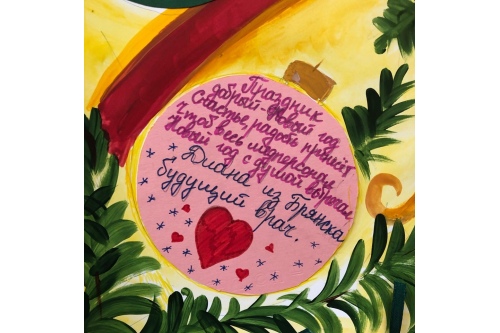 Праздник
добрый - Новый год
Счастье, радость принесёт
Чтоб весь медперсонал
Новый год с душой встречал.
Диана из Брянска
будущий врач.